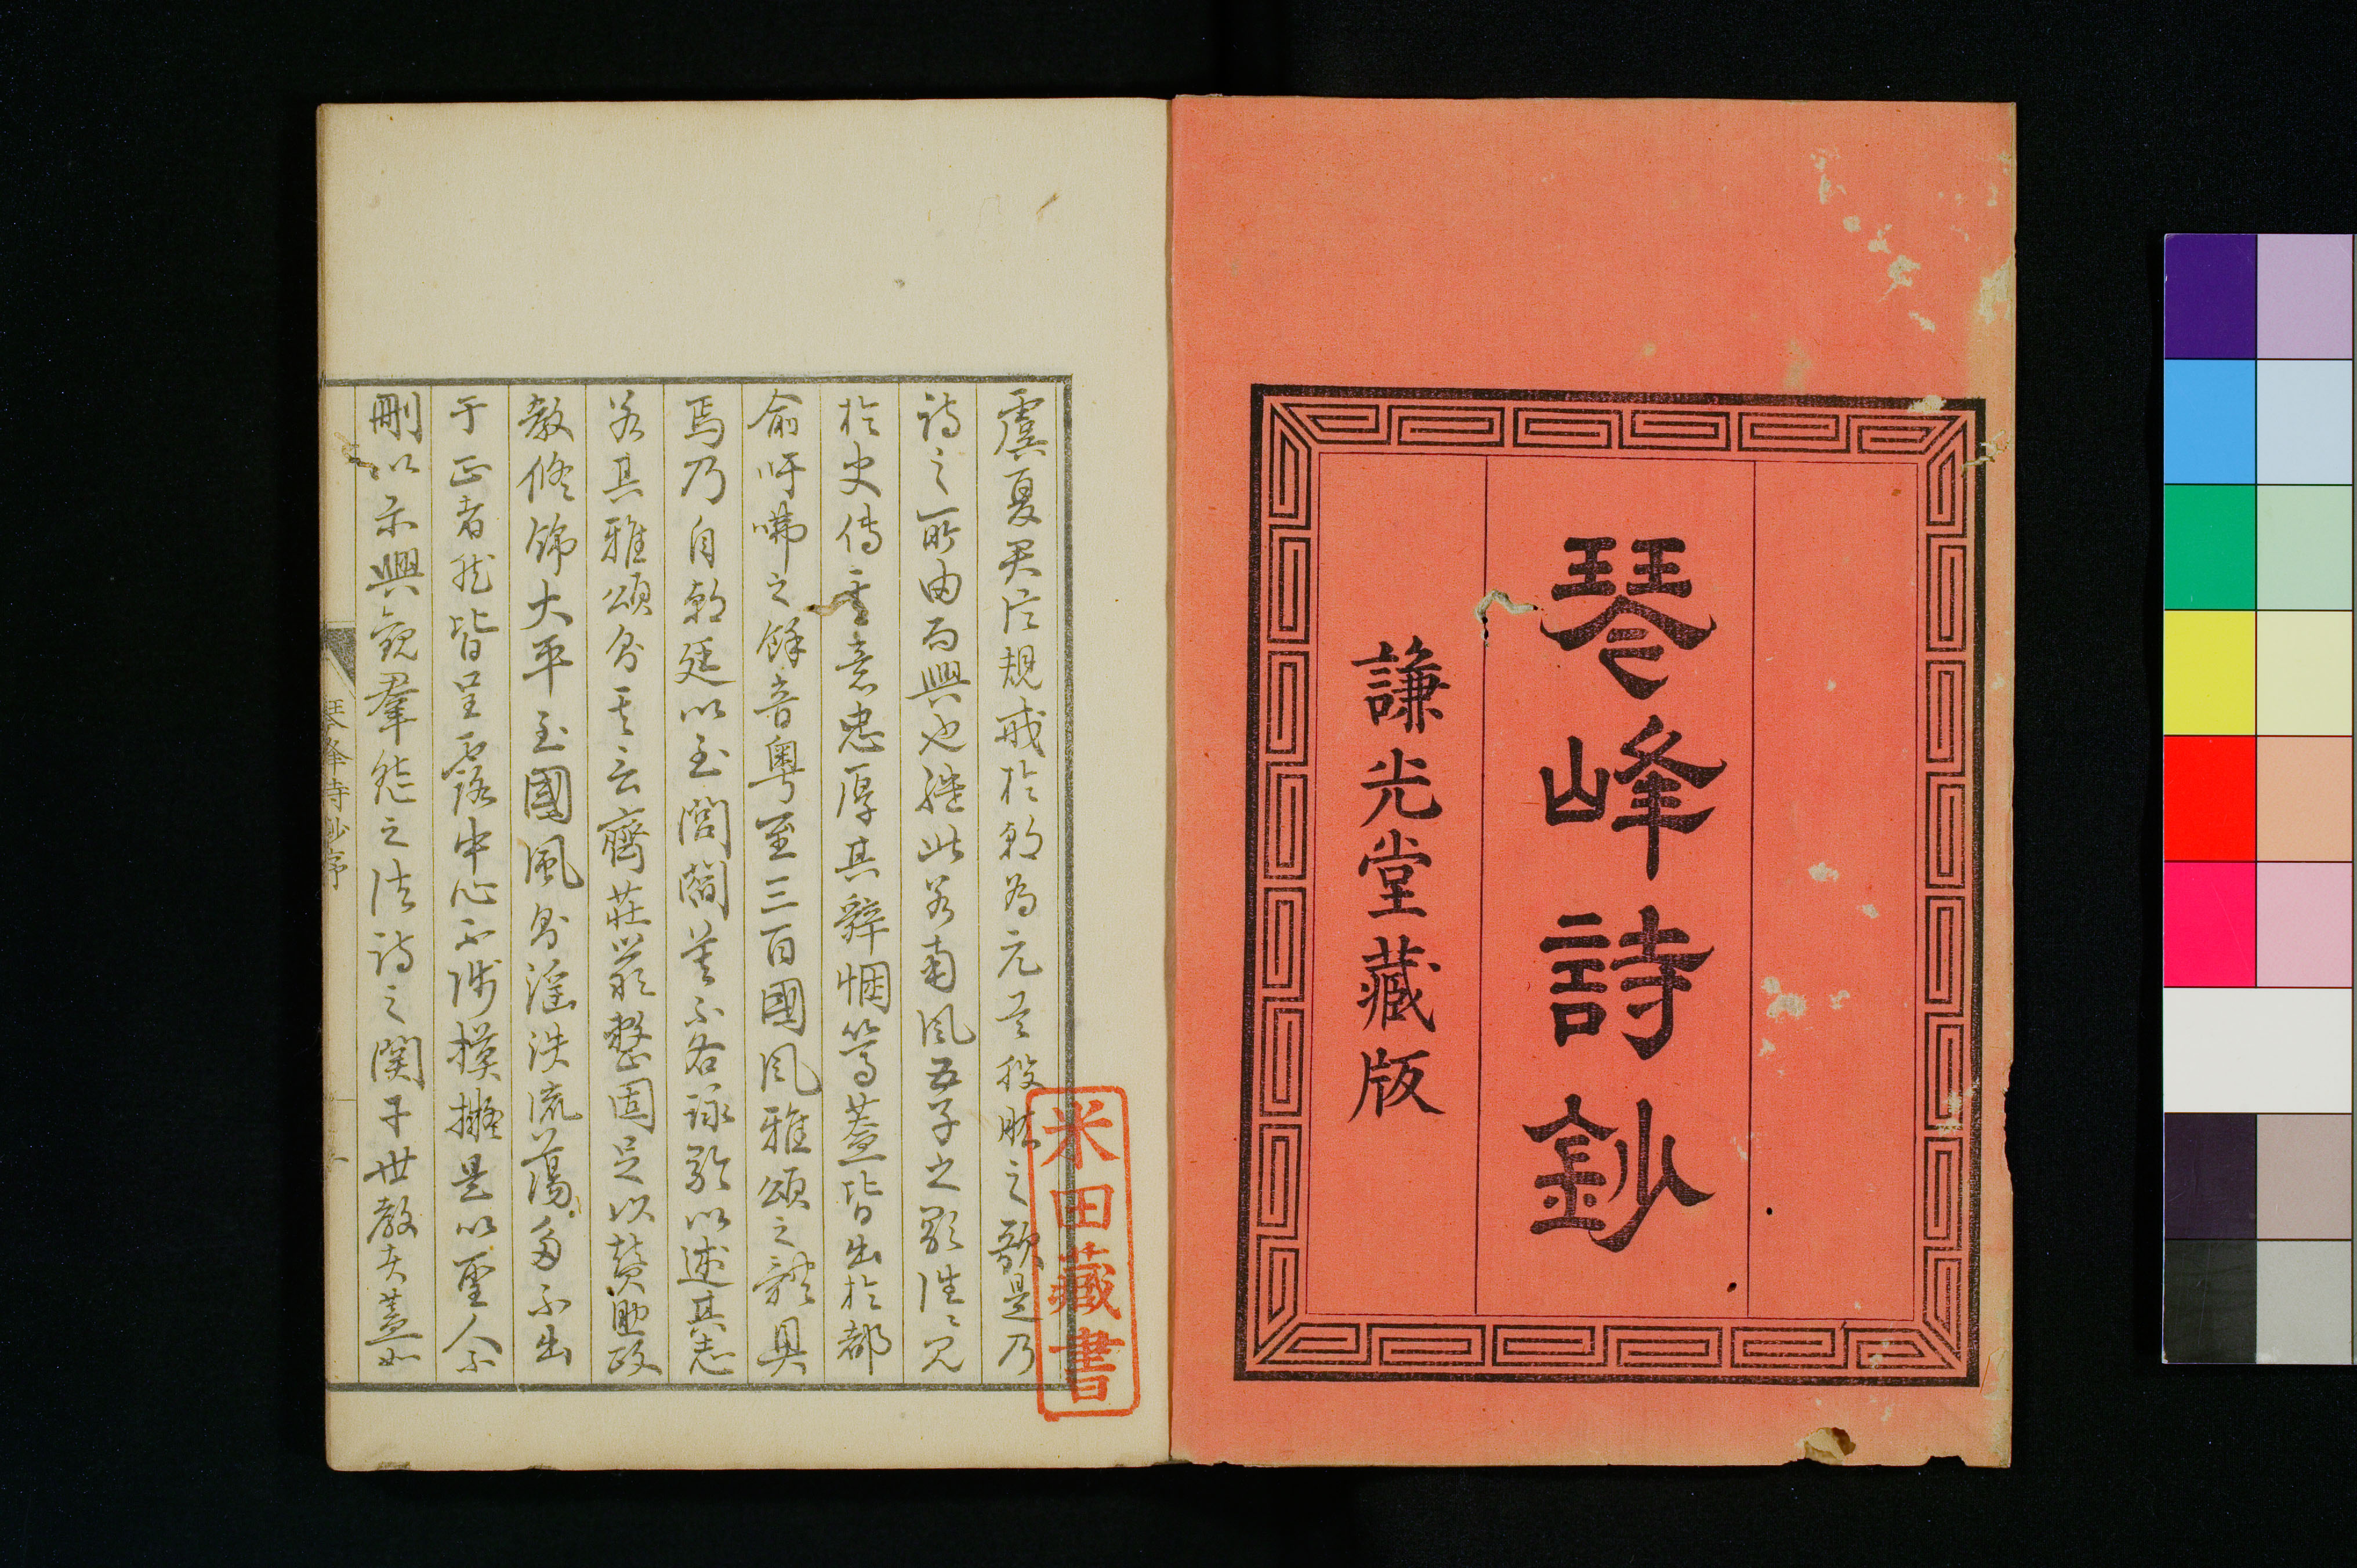 琴峰詩鈔
謙光堂藏版
虞夏君臣規戒於朝為元首股肱之歌是乃
詩之所由而興也繼此若南風五子之歌往〻見
於史傳其意忠厚其辭悃篤蓋皆出於都
俞吁咈之餘音粵至三百國風雅頌之體具
焉乃自朝廷以至閭閻莫不各詠歌以述其志
若其雅頌則其言齊莊嚴整固足以贊助政
教修飾大平至國風則淫泆流蕩多不出
于正者然皆呈露中心不涉摸擬是以聖人不
刪以示興觀羣怨之法詩之関于世教夫蓋如
琴峰詩鈔序
米田藏書